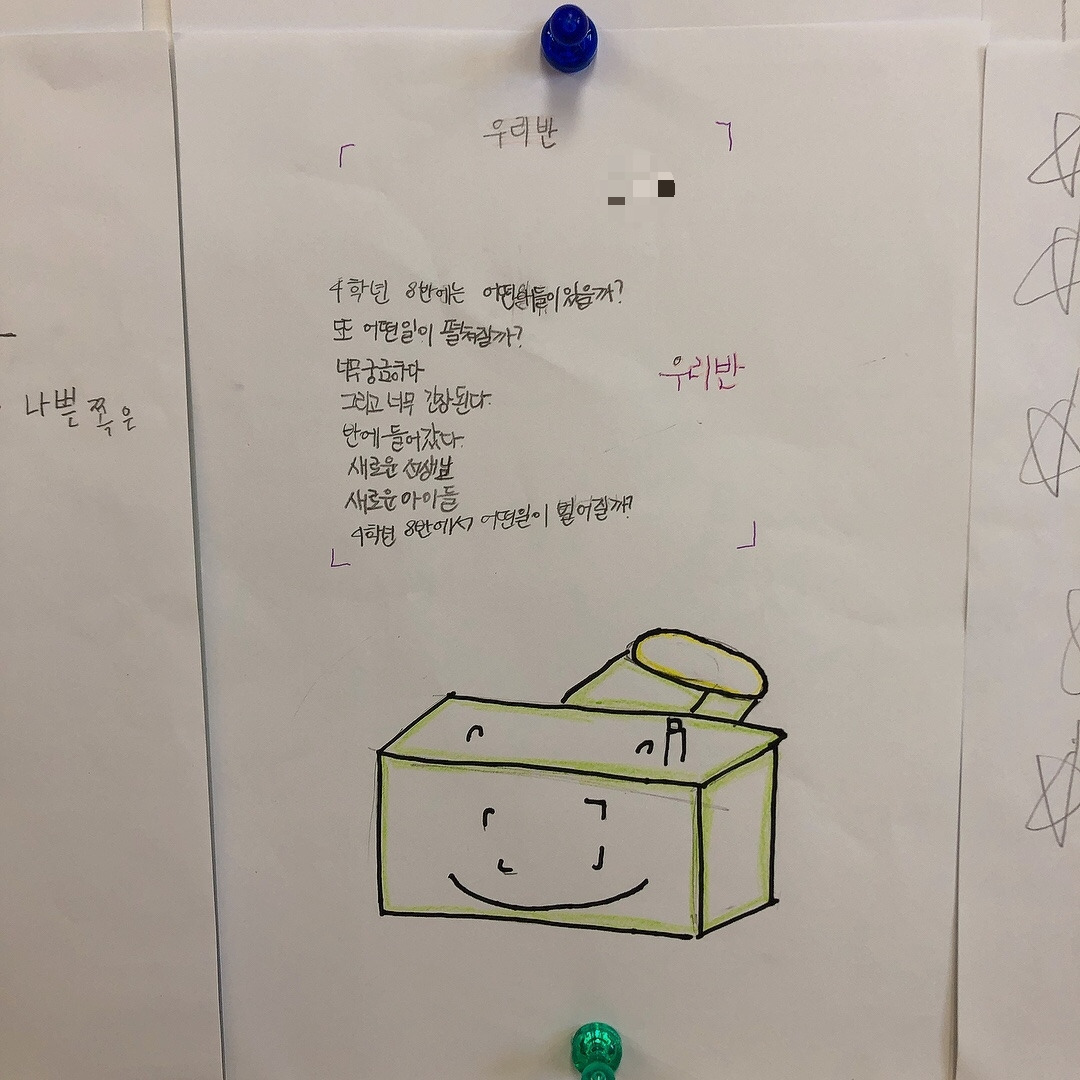 우리반
4학년 8반에는 어떤일들이 있을까?
또 어떤일이 펼쳐질까?
너무궁금하다
그리고 너무 긴장된다.
반에 들어갔다.
새로운 선생님
새로운 아이들
4학년 8반에서 어떤일이 벌어질까?
우리반
나쁜 쪽은